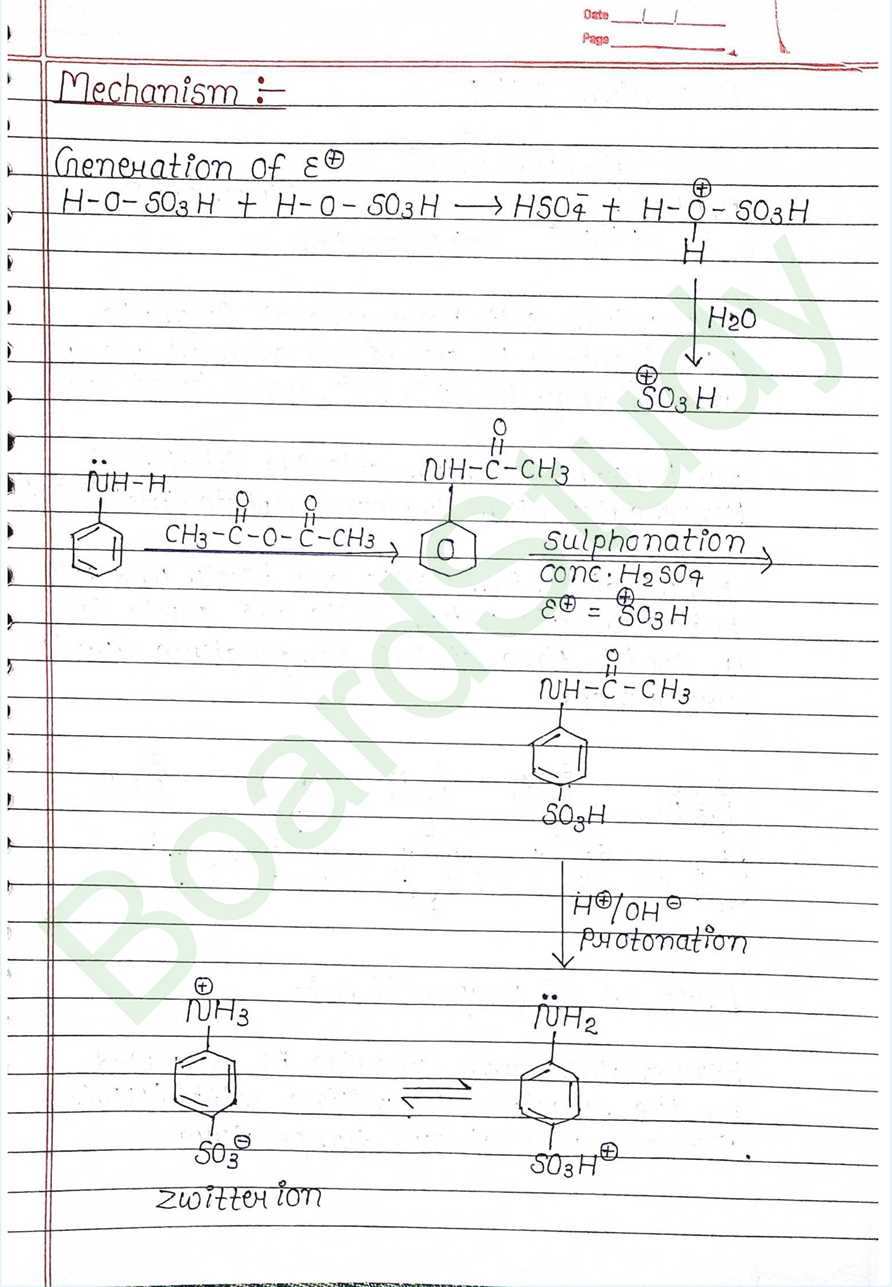 Date / /
Page
Mechanism :-
Generation of ε⊕
H-O-SO3H + H-O-SO3H ⟶ HSO4⁻ + H-O⊕-SO3H
H
H2O
⊕SO3H
O
N̈H-H
NH-C-CH3
O O
CH3-C-O-C-CH3
O
sulphonation
conc. H2SO4
ε⊕ = ⊕SO3H
O
NH-C-CH3
SO3H
H⊕/OH⊖
Protonation
⊕NH3
N̈H2
⇌
SO3⊖
SO3H⊕
zwitter ion
BoardStudy